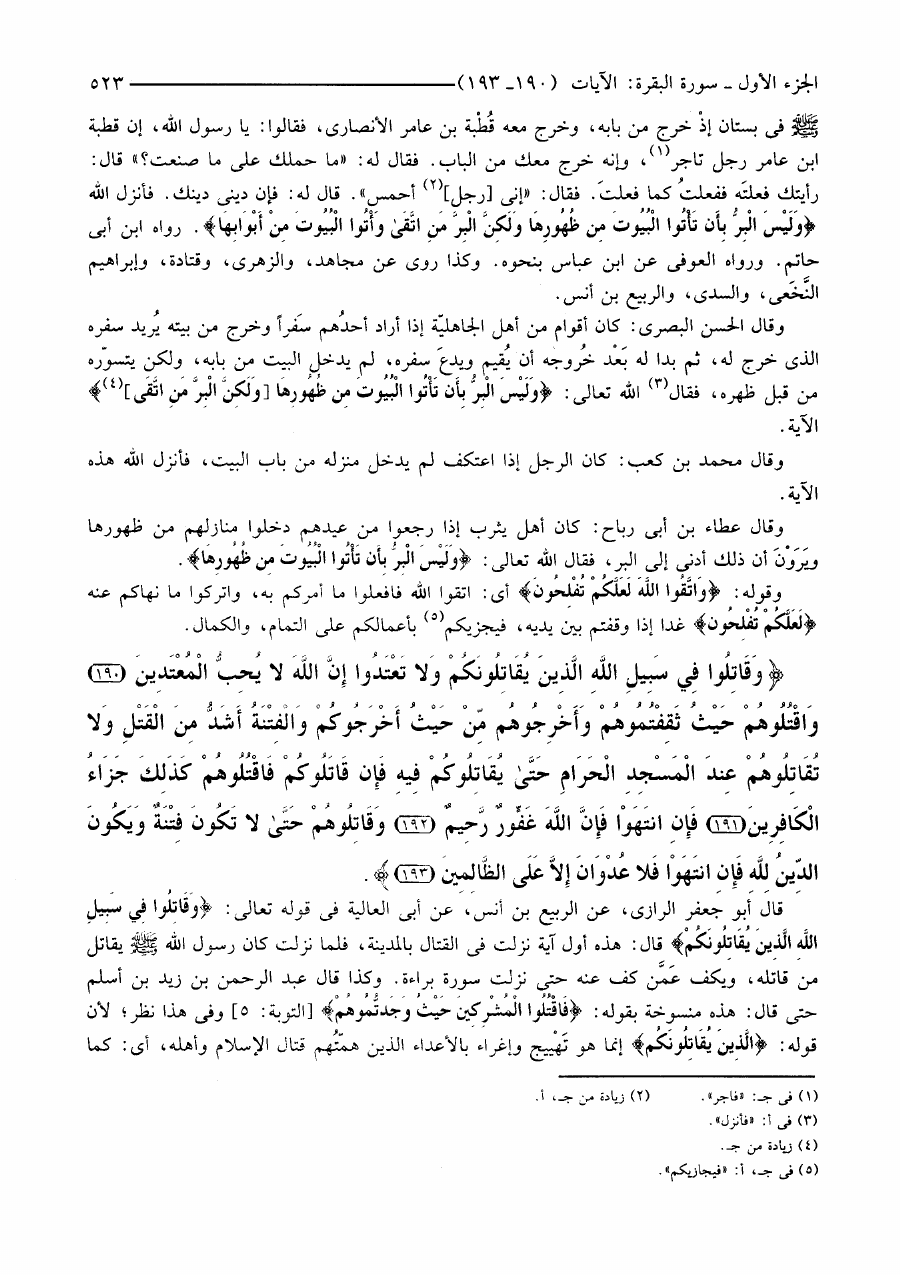 الجزء الأول ـ سورة البقرة: الآيات (١٩٠ـ ١٩٣) ٥٢٣
ﷺ فى بستان إذْ خرج من بابه، وخرج معه قُطْبة بن عامر الأنصارى، فقالوا: يا رسول الله، إن قطبة
ابن عامر رجل تاجر(١)، وإنه خرج معك من الباب. فقال له: «ما حملك على ما صنعت؟» قال:
رأيتك فعلتَه ففعلتُ كما فعلتَ. فقال: «إنى [رجل](٢) أحمس». قال له: فإن دينى دينك. فأنزل الله
﴿وَلَيْسَ الْبِرُّ بِأَن تَأْتُوا الْبُيُوتَ مِن ظُهُورِهَا وَلَكِنَّ الْبِرَّ مَنِ اتَّقَىٰ وَأْتُوا الْبُيُوتَ مِنْ أَبْوَابِهَا﴾. رواه ابن أبى
حاتم. ورواه العوفى عن ابن عباس بنحوه. وكذا روى عن مجاهد، والزهرى، وقتادة، وإبراهيم
النَّخَعى، والسدى، والربيع بن أنس.
وقال الحسن البصرى: كان أقوام من أهل الجاهليّة إذا أراد أحدُهم سَفَراً وخرج من بيته يُريد سفره
الذى خرج له، ثم بدا له بَعْد خُروجه أن يُقيم ويدعَ سفره، لم يدخل البيت من بابه، ولكن يتسوّره
من قبل ظهره، فقال(٣) الله تعالى: ﴿وَلَيْسَ الْبِرُّ بِأَن تَأْتُوا الْبُيُوتَ مِن ظُهُورِهَا [وَلَكِنَّ الْبِرَّ مَنِ اتَّقَى](٤)﴾
الآية.
وقال محمد بن كعب: كان الرجل إذا اعتكف لم يدخل منزله من باب البيت، فأنزل الله هذه
الآية.
وقال عطاء بن أبى رباح: كان أهل يثرب إذا رجعوا من عيدهم دخلوا منازلهم من ظهورها
ويَرَوْنَ أن ذلك أدنى إلى البر، فقال الله تعالى: ﴿وَلَيْسَ الْبِرُّ بِأَن تَأْتُوا الْبُيُوتَ مِن ظُهُورِهَا﴾.
وقوله: ﴿وَاتَّقُوا اللَّهَ لَعَلَّكُمْ تُفْلِحُونَ﴾ أى: اتقوا الله فافعلوا ما أمركم به، واتركوا ما نهاكم عنه
﴿لَعَلَّكُمْ تُفْلِحُونَ﴾ غدا إذا وقفتم بين يديه، فيجزيكم(٥) بأعمالكم على التمام، والكمال.
﴿وَقَاتِلُوا فِي سَبِيلِ اللَّهِ الَّذِينَ يُقَاتِلُونَكُمْ وَلا تَعْتَدُوا إِنَّ اللَّهَ لا يُحِبُّ الْمُعْتَدِينَ (١٩٠)
وَاقْتُلُوهُمْ حَيْثُ ثَقِفْتُمُوهُمْ وَأَخْرِجُوهُم مِّنْ حَيْثُ أَخْرَجُوكُمْ وَالْفِتْنَةُ أَشَدُّ مِنَ الْقَتْلِ وَلا
تُقَاتِلُوهُمْ عِندَ الْمَسْجِدِ الْحَرَامِ حَتَّىٰ يُقَاتِلُوكُمْ فِيهِ فَإِن قَاتَلُوكُمْ فَاقْتُلُوهُمْ كَذَلِكَ جَزَاءُ
الْكَافِرِينَ (١٩١) فَإِنِ انتَهَوْا فَإِنَّ اللَّهَ غَفُورٌ رَّحِيمٌ (١٩٢) وَقَاتِلُوهُمْ حَتَّىٰ لا تَكُونَ فِتْنَةٌ وَيَكُونَ
الدِّينُ لِلَّهِ فَإِنِ انتَهَوْا فَلا عُدْوَانَ إِلاَّ عَلَى الظَّالِمِينَ (١٩٣)﴾.
قال أبو جعفر الرازى، عن الربيع بن أنس، عن أبى العالية فى قوله تعالى: ﴿وَقَاتِلُوا فِي سَبِيلِ
اللَّهِ الَّذِينَ يُقَاتِلُونَكُمْ﴾ قال: هذه أول آية نزلت فى القتال بالمدينة، فلما نزلت كان رسول الله ﷺ يقاتل
من قاتله، ويكف عَمَّن كف عنه حتى نزلت سورة براءة. وكذا قال عبد الرحمن بن زيد بن أسلم
حتى قال: هذه منسوخة بقوله: ﴿فَاقْتُلُوا الْمُشْرِكِينَ حَيْثُ وَجَدتُّمُوهُمْ﴾ [التوبة: ٥] وفى هذا نظر؛ لأن
قوله: ﴿الَّذِينَ يُقَاتِلُونَكُمْ﴾ إنما هو تَهْييج وإغراء بالأعداء الذين همتُهم قتال الإسلام وأهله، أى: كما
(١) فى جـ: «فاجر». (٢) زيادة من جـ، أ.
(٣) فى أ: «فأنزل».
(٤) زيادة من جـ.
(٥) فى جـ، أ: «فيجازيكم».